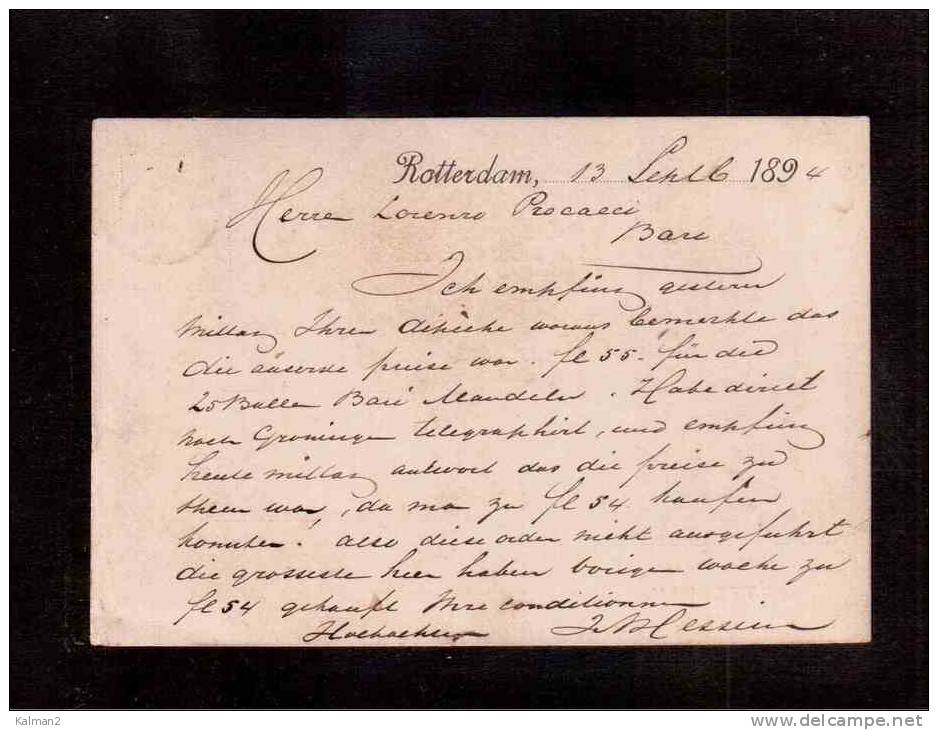 Rotterdam, 13 Septb 1894
Herre Lorenzo Procacci
Bari
Ich empfing gestern
mittag Ihren depeche woraus bemerkte das
die äuserste preise war fl 55.- für die
25 Balle Bari Mandeln. Habe direct
nach Groningen telegraphirt, und empfing
heute mittag antwort das die preise zu
theur war, da man zu fl 54 kaufen
konnte! also diese order nicht ausgeführt
die grosseste hier haben vorigen woche zu
fl 54 gekauft Ihre conditionnen
Hochachtend
Kalman2
delcampe.net